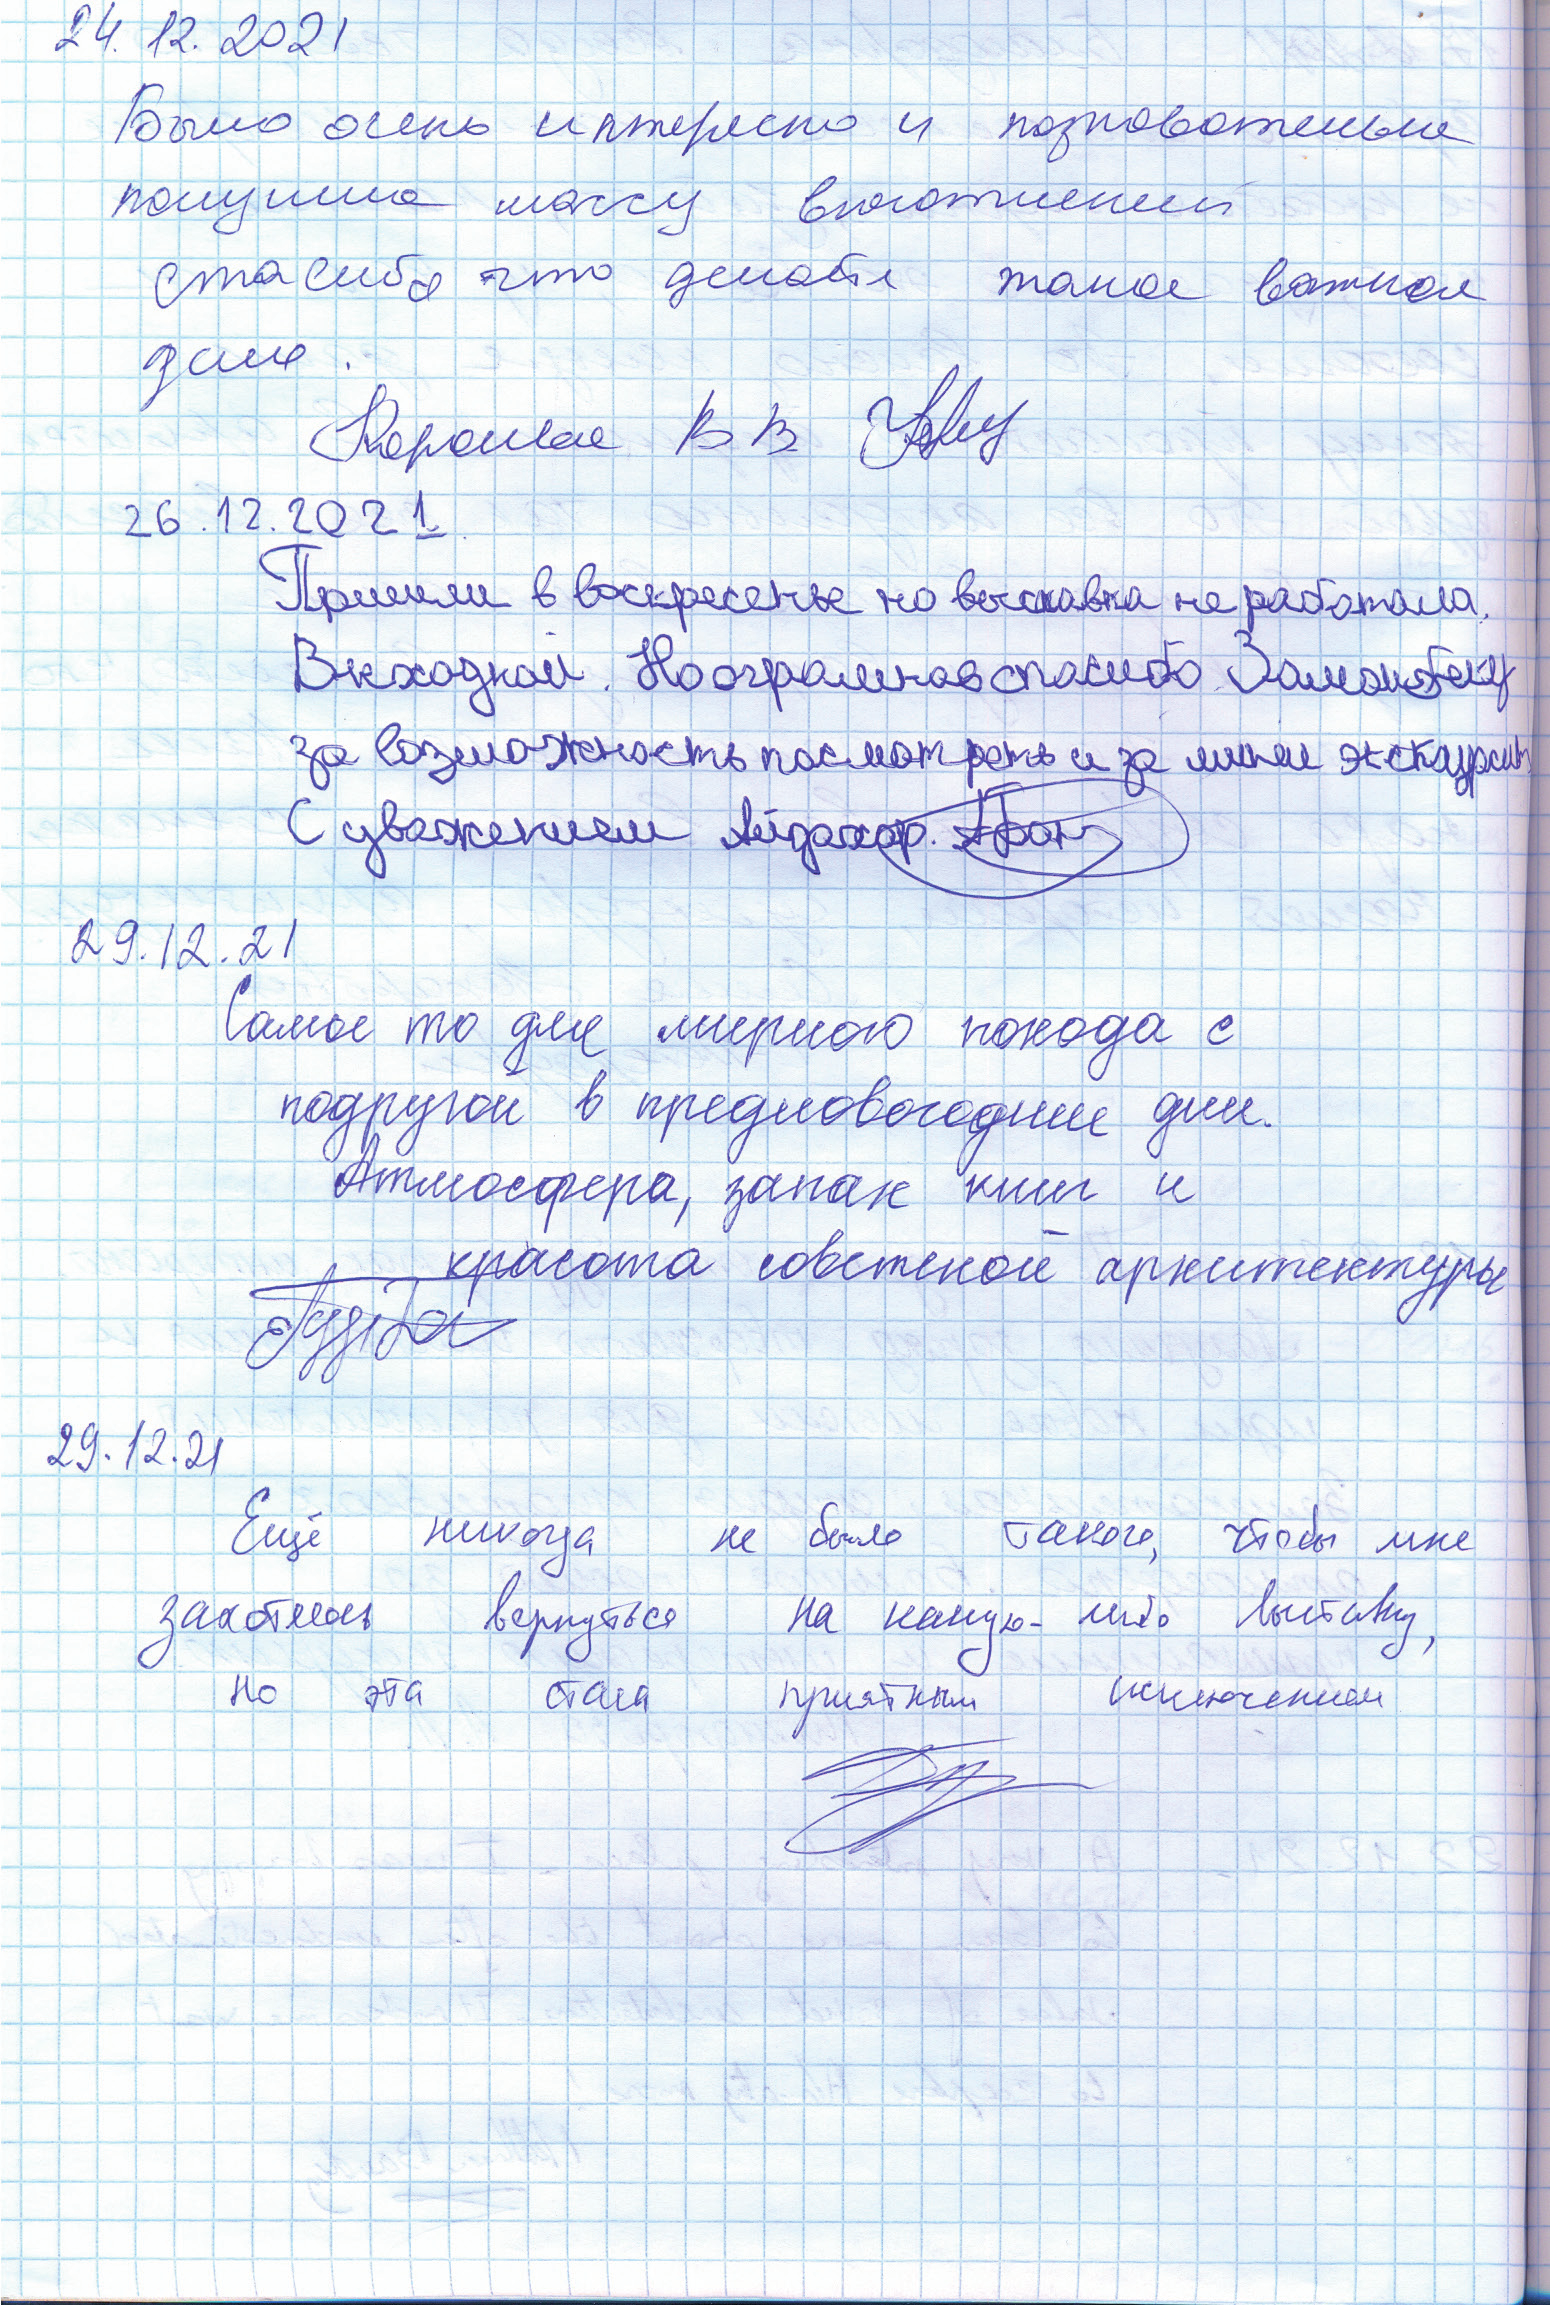 24.12.2021
Было очень интересно и познавательно
получила массу впечатлений
спасибо что делаете такое важное
дело.
В В
26.12.2021
Пришли в воскресенье но выставка не работала.
Выходной. Но огромное спасибо Заманбеку
за возможность посмотреть и за мини экскурсию
С уважением Айдахар.
29.12.21
Самое то для мирного похода с
подругой в предновогодние дни.
Атмосфера, запах книг и
красота советской архитектуры
29.12.21
Ещё никогда не было такого, чтобы мне
захотелось вернуться на какую-либо выставку,
но эта стала приятным исключением